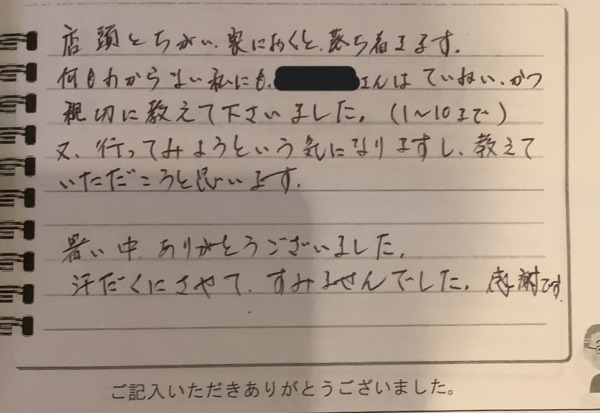 店頭とちがい、家におくと、落ち着きます。
何もわからない私にも、さんはていねい、かつ
親切に教えて下さいました。(1〜10まで)
又、行ってみようという気になりますし、教えて
いただこうと思います。
暑い中、ありがとうございました。
汗だくにさせて、すみませんでした。感謝です
ご記入いただきありがとうございました。